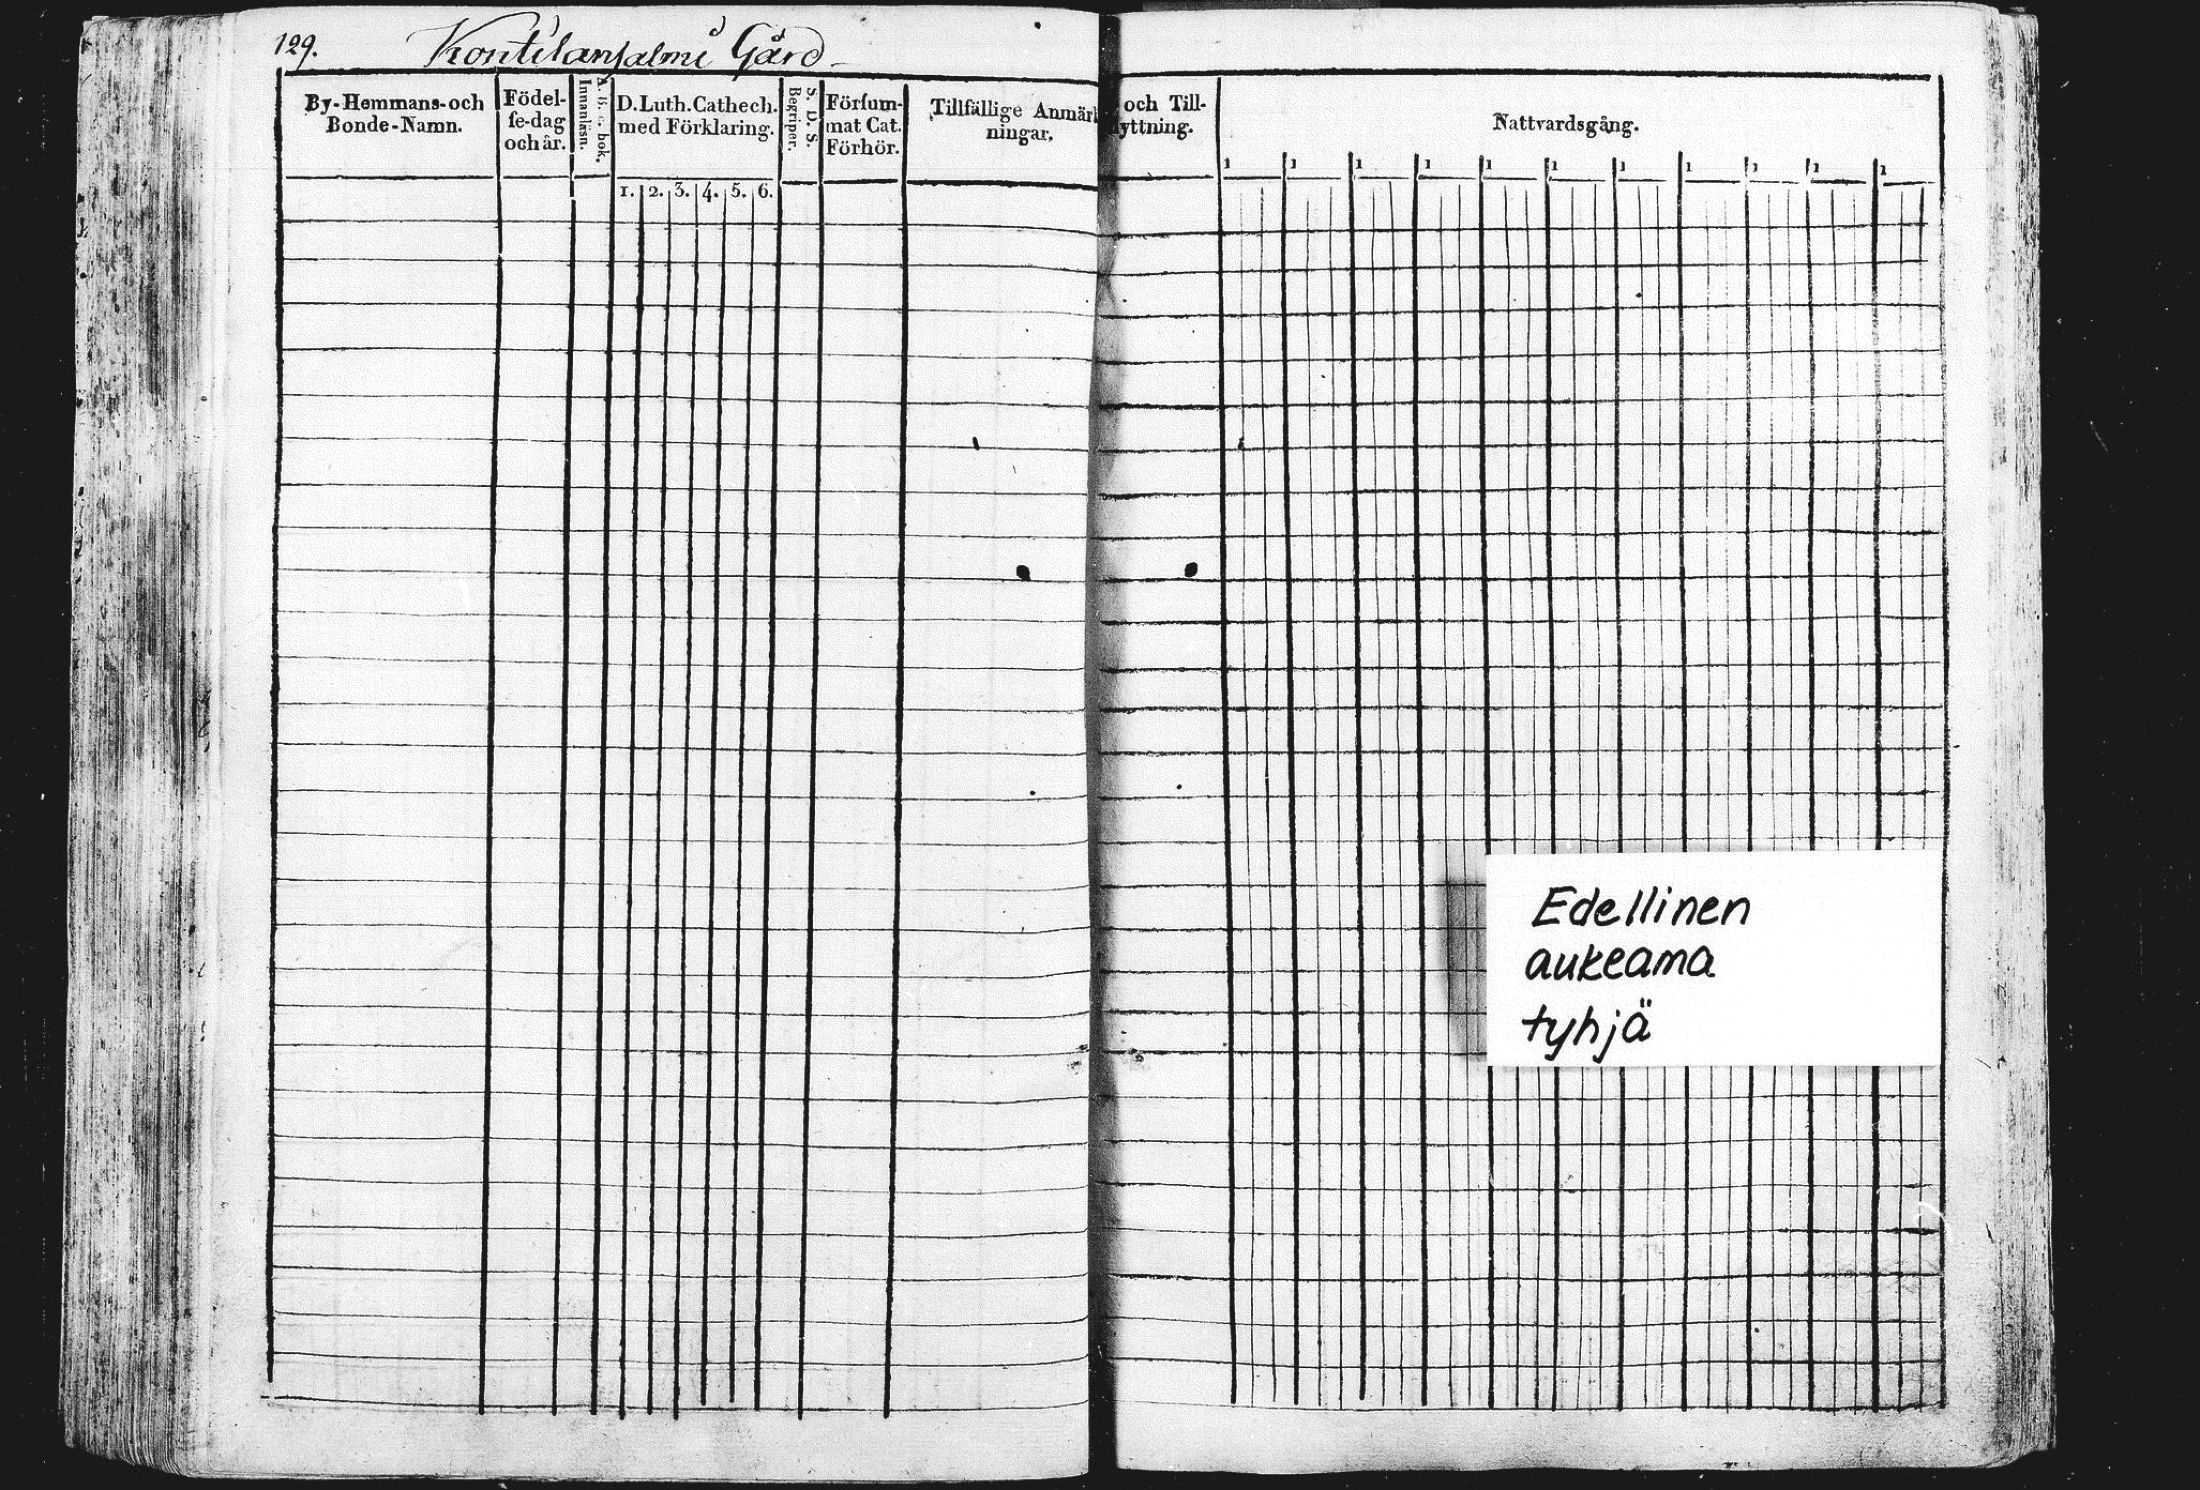 129. Kontilansalmi Gård
By-Hemmans-och
Bonde-Namn.
Födel-
se-dag
och år.
A. B. C. bok.
Innanläsn.
D. Luth. Cathech.
med Förklaring.
1. 2. 3. 4. 5. 6.
S. D. S.
Begriper.
Försum-
mat Cat.
Förhör.
Tillfällige Anmärk
ningar.
och Till-
lyttning.
Nattvardsgång.
1 1 1 1 1 1 1 1 1 1 1
Edellinen
aukeama
tyhjä